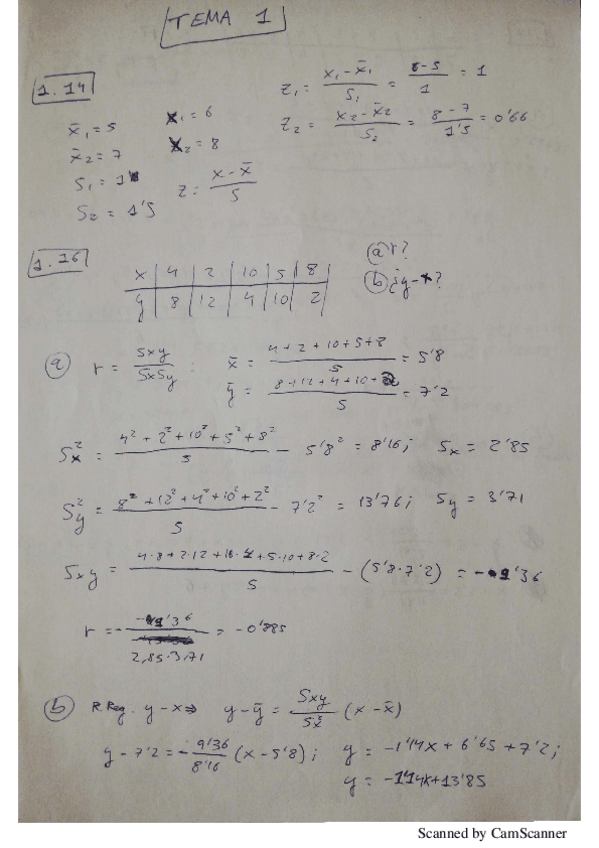 TEMA 1
1.14
x̄₁ = 5   x₁ = 6   z₁ = (x₁ - x̄₁)/S₁ = (6-5)/1 = 1
x̄₂ = 7   x₂ = 8   z₂ = (x₂ - x̄₂)/S₂ = (8-7)/1'5 = 0'66
S₁ = 1   z = (x - x̄)/S
S₂ = 1'5
1.16
x | 4 | 2 | 10 | 5 | 8   a r?
y | 8 | 12 | 4 | 10 | 2   b ¿y-x?
a r = Sxy/SxSy : x̄ = (4+2+10+5+8)/5 = 5'8
ȳ = (8+12+4+10+2)/5 = 7'2
Sx² = (4² + 2² + 10² + 5² + 8²)/5 - 5'8² = 8'16; Sx = 2'85
Sy² = (8² + 12² + 4² + 10² + 2²)/5 - 7'2² = 13'76; Sy = 3'71
Sxy = (4·8+2·12+10·4+5·10+8·2)/5 - (5'8·7'2) = -9'36
r = - -9'36/2,85·3,71 = -0'885
b R. Reg. y-x ⇒ y - ȳ = Sxy/Sx² (x - x̄)
y - 7'2 = - 9'36/8'16 (x - 5'8); y = -1'14x + 6'65 + 7'2;
y = -1'14x+13'85
Scanned by CamScanner